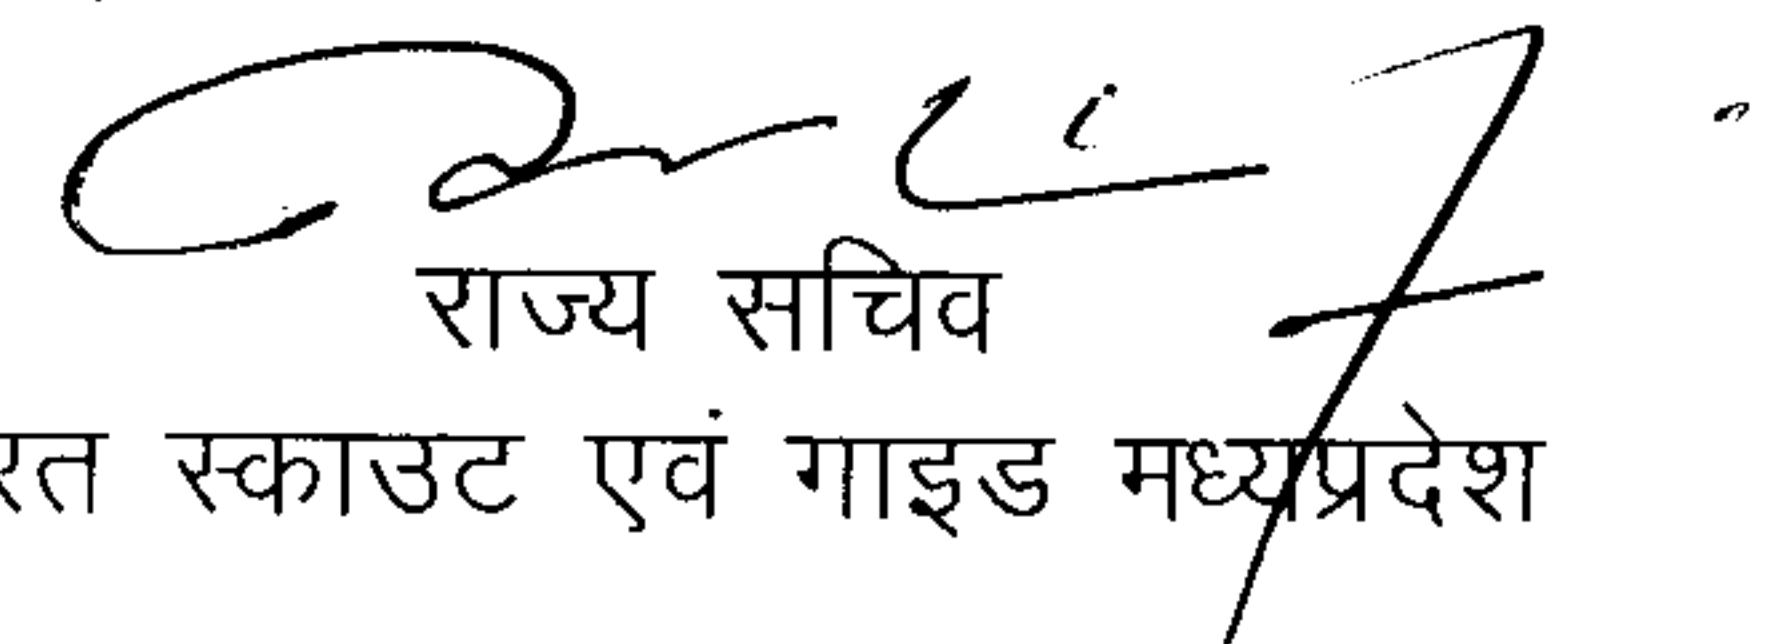 राज्य सचिव
रत स्काउट एवं गाइड मध्यप्रदेश